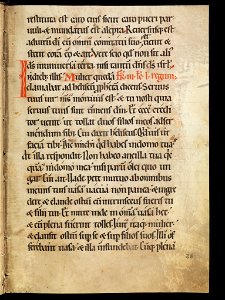 restituta est caro eius sicut caro pueri par
uuli & mundatus est a lepra. Reuersusq; est
ad uirū dī cum omni comitatu suo & uenit &
stetit corā eo & ait. Vere scio qđ non sit ali
us ds̄ in uniuersa terra nisi tantū dn̄s ds̄ isrl̄
In dieb; illis. Mulier quedā regum.
clamabat ad heliseū ꝓphetā dicens. Seruus
tuus uir meus mortuus est & tu nosti quia
seruus tuus fuit timens dm̄. Et ecce credi
tor uenit ut tollat duos filios meos ad ser
uiendum sibi. Cui dixit heliseus. Quid uis ut
faciā tibi. Dic michi qđ habes in domo tua
At illa respondit. Non habeo ancilla tua qc
quā in domo mea nisi parū olei quo un
gar. Cui ait. Vade pete mutuo ab omnibus
uicinis tuis uasa uacua non pauca & ingre
dere & claude ostiū cū intrinsecus fueris tu
& filii tui. Et mitte inde in omnia uasa hec
& cū plena fuerint tolles. Iuit itaq; mulier
& clausit ostiū sup se & sup filios suos. Illi of
ferebant uasa & illa infundebat. Cūq; plena